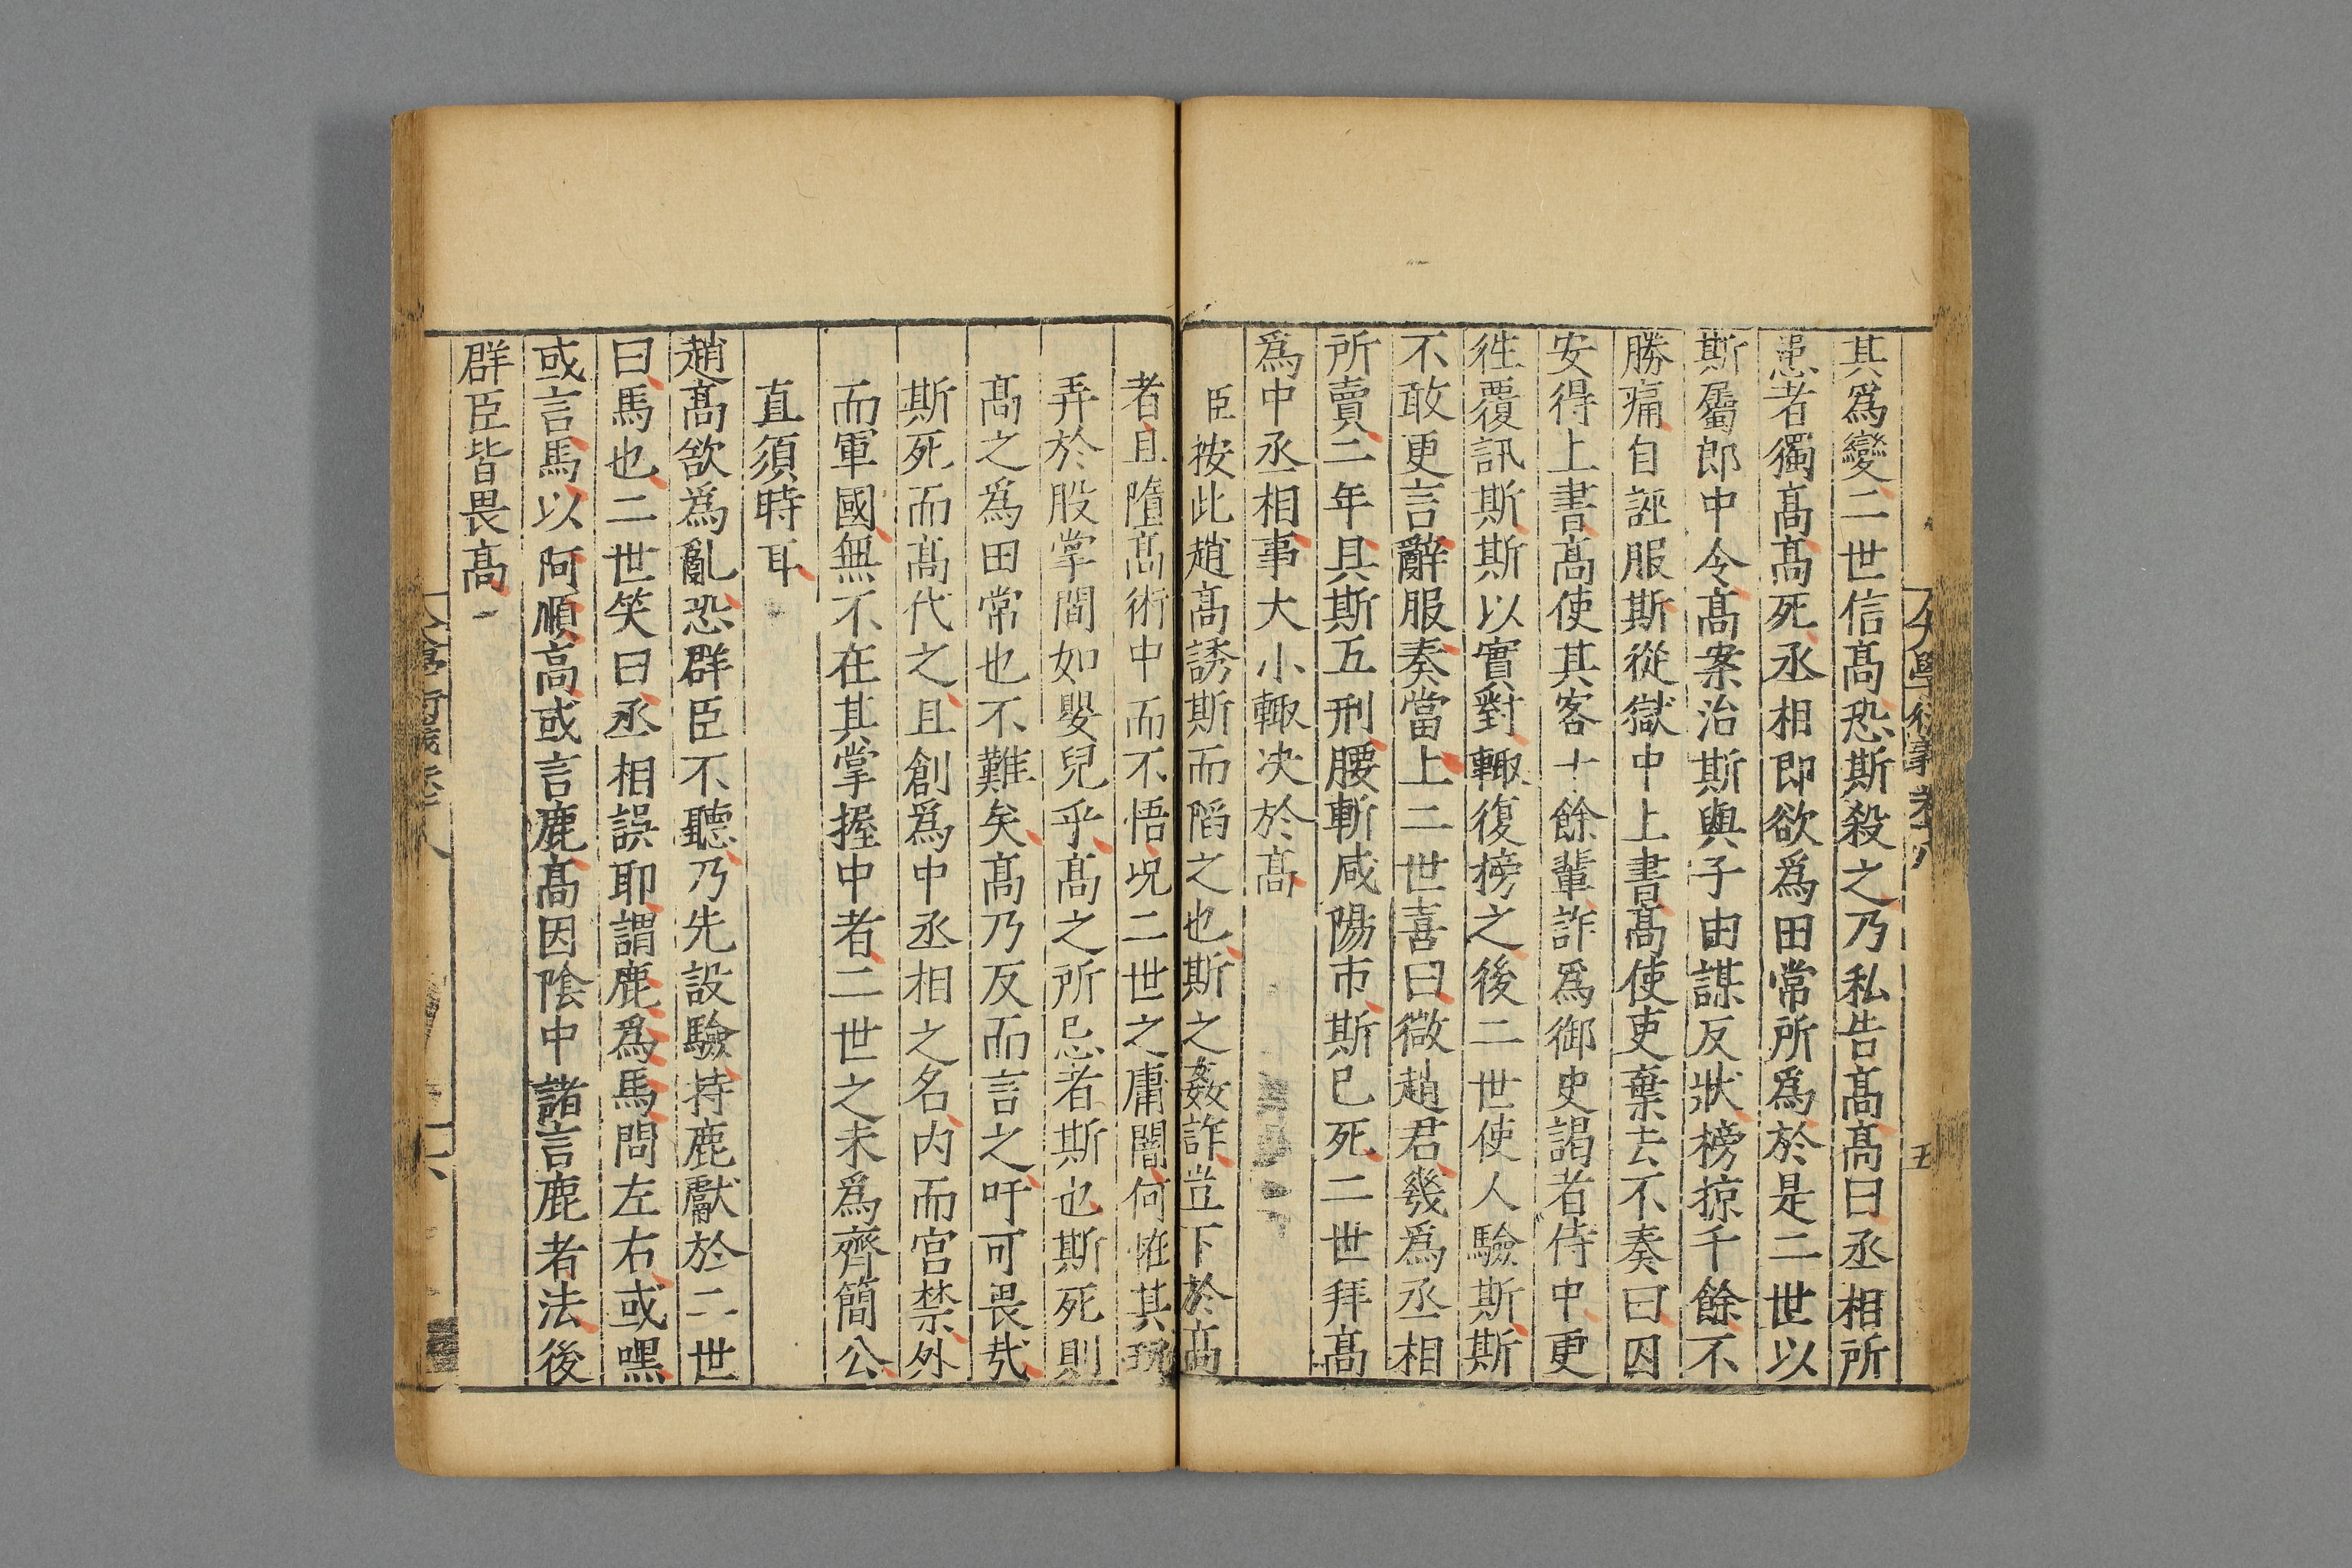 其爲變二世信髙恐斯殺之乃私告髙髙曰丞相所
患者獨髙髙死丞相即欲爲田常所爲於是二世以
斯屬郎中令髙案治斯與子由謀反狀榜掠千餘不
勝痛自誣服斯從獄中上書髙使吏棄去不奏曰囚
安得上書髙使其客十餘輩詐爲御史謁者侍中更
徃覆訊斯斯以實對輙復榜之後二世使人驗斯斯
不敢更言辭服奏當上二世喜曰微趙君幾爲丞相
所賣二年具斯五刑腰斬咸陽市斯已死二世拜髙
爲中丞相事大小輙决於髙
臣按此趙髙誘斯而䧟之也斯之姦詐豈下於髙
者且墮髙術中而不悟况二世之庸闇何惟其玩
弄於股掌間如嬰兒乎髙之所忌者斯也斯死則
髙之爲田常也不難矣髙乃反而言之吁可畏㢤
斯死而髙代之且創爲中丞相之名内而宫禁外
而軍國無不在其掌握中者二世之未爲齊簡公
直須時耳
趙髙欲爲亂恐群臣不聽乃先設驗持鹿獻於二世
曰馬也二世笑曰丞相誤耶謂鹿爲馬問左右或嘿
或言馬以阿順高或言鹿髙因陰中諸言鹿者法後
群臣皆畏髙
大學衍義卷十八
五